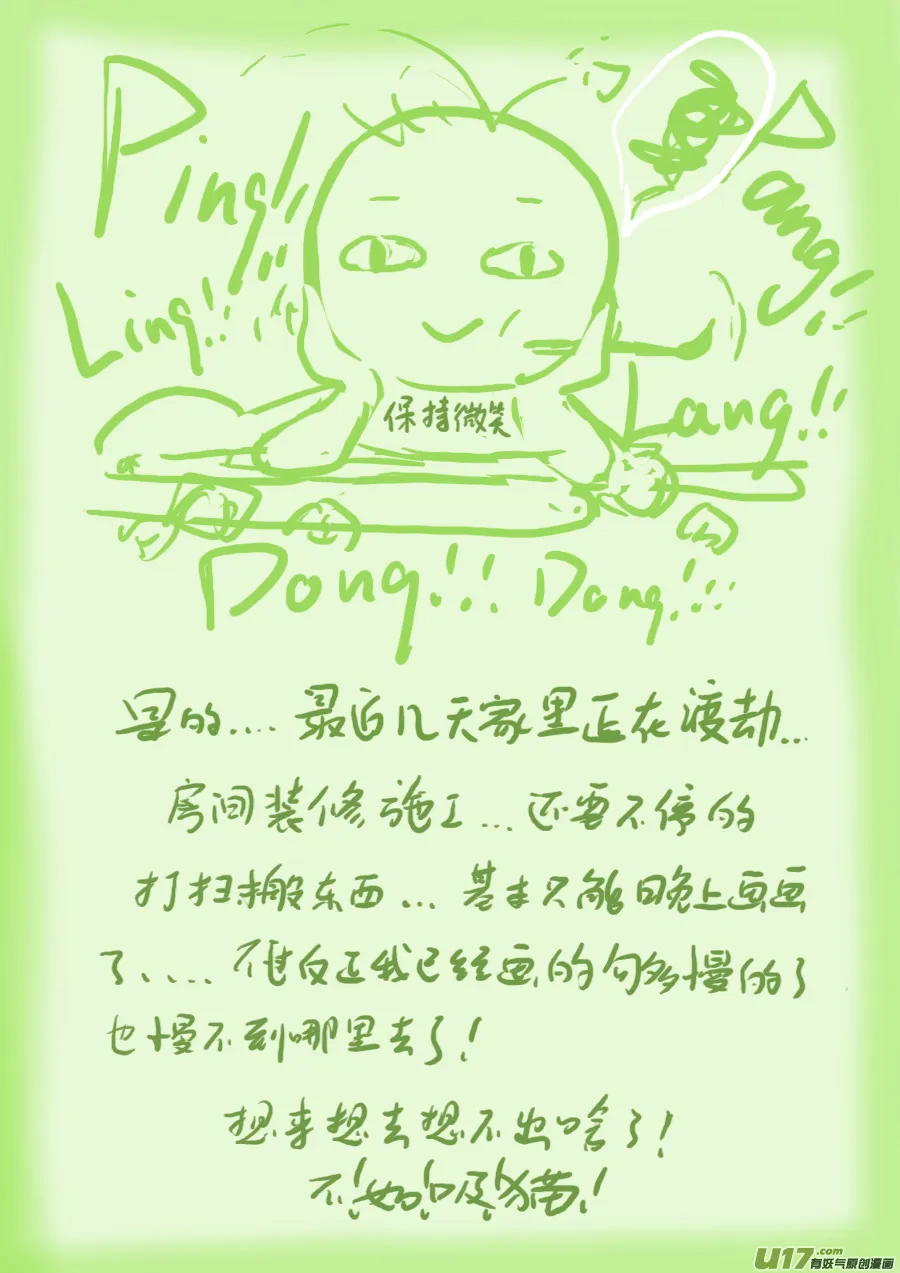 Ping!!
Pang!!
Ling!!
保持微笑
Lang!!
Dong!!! Dong!!!
是的....最近几天家里正在渡劫...
房间装修施工...还要不停的
打扫搬东西...基本只能晚上画画
了、....不过反正我已经画的勾多慢的了
也慢不到哪里去了!
想来想去想不出啥了!
不!如!吸!猫!
U17.com
有妖气原创漫画